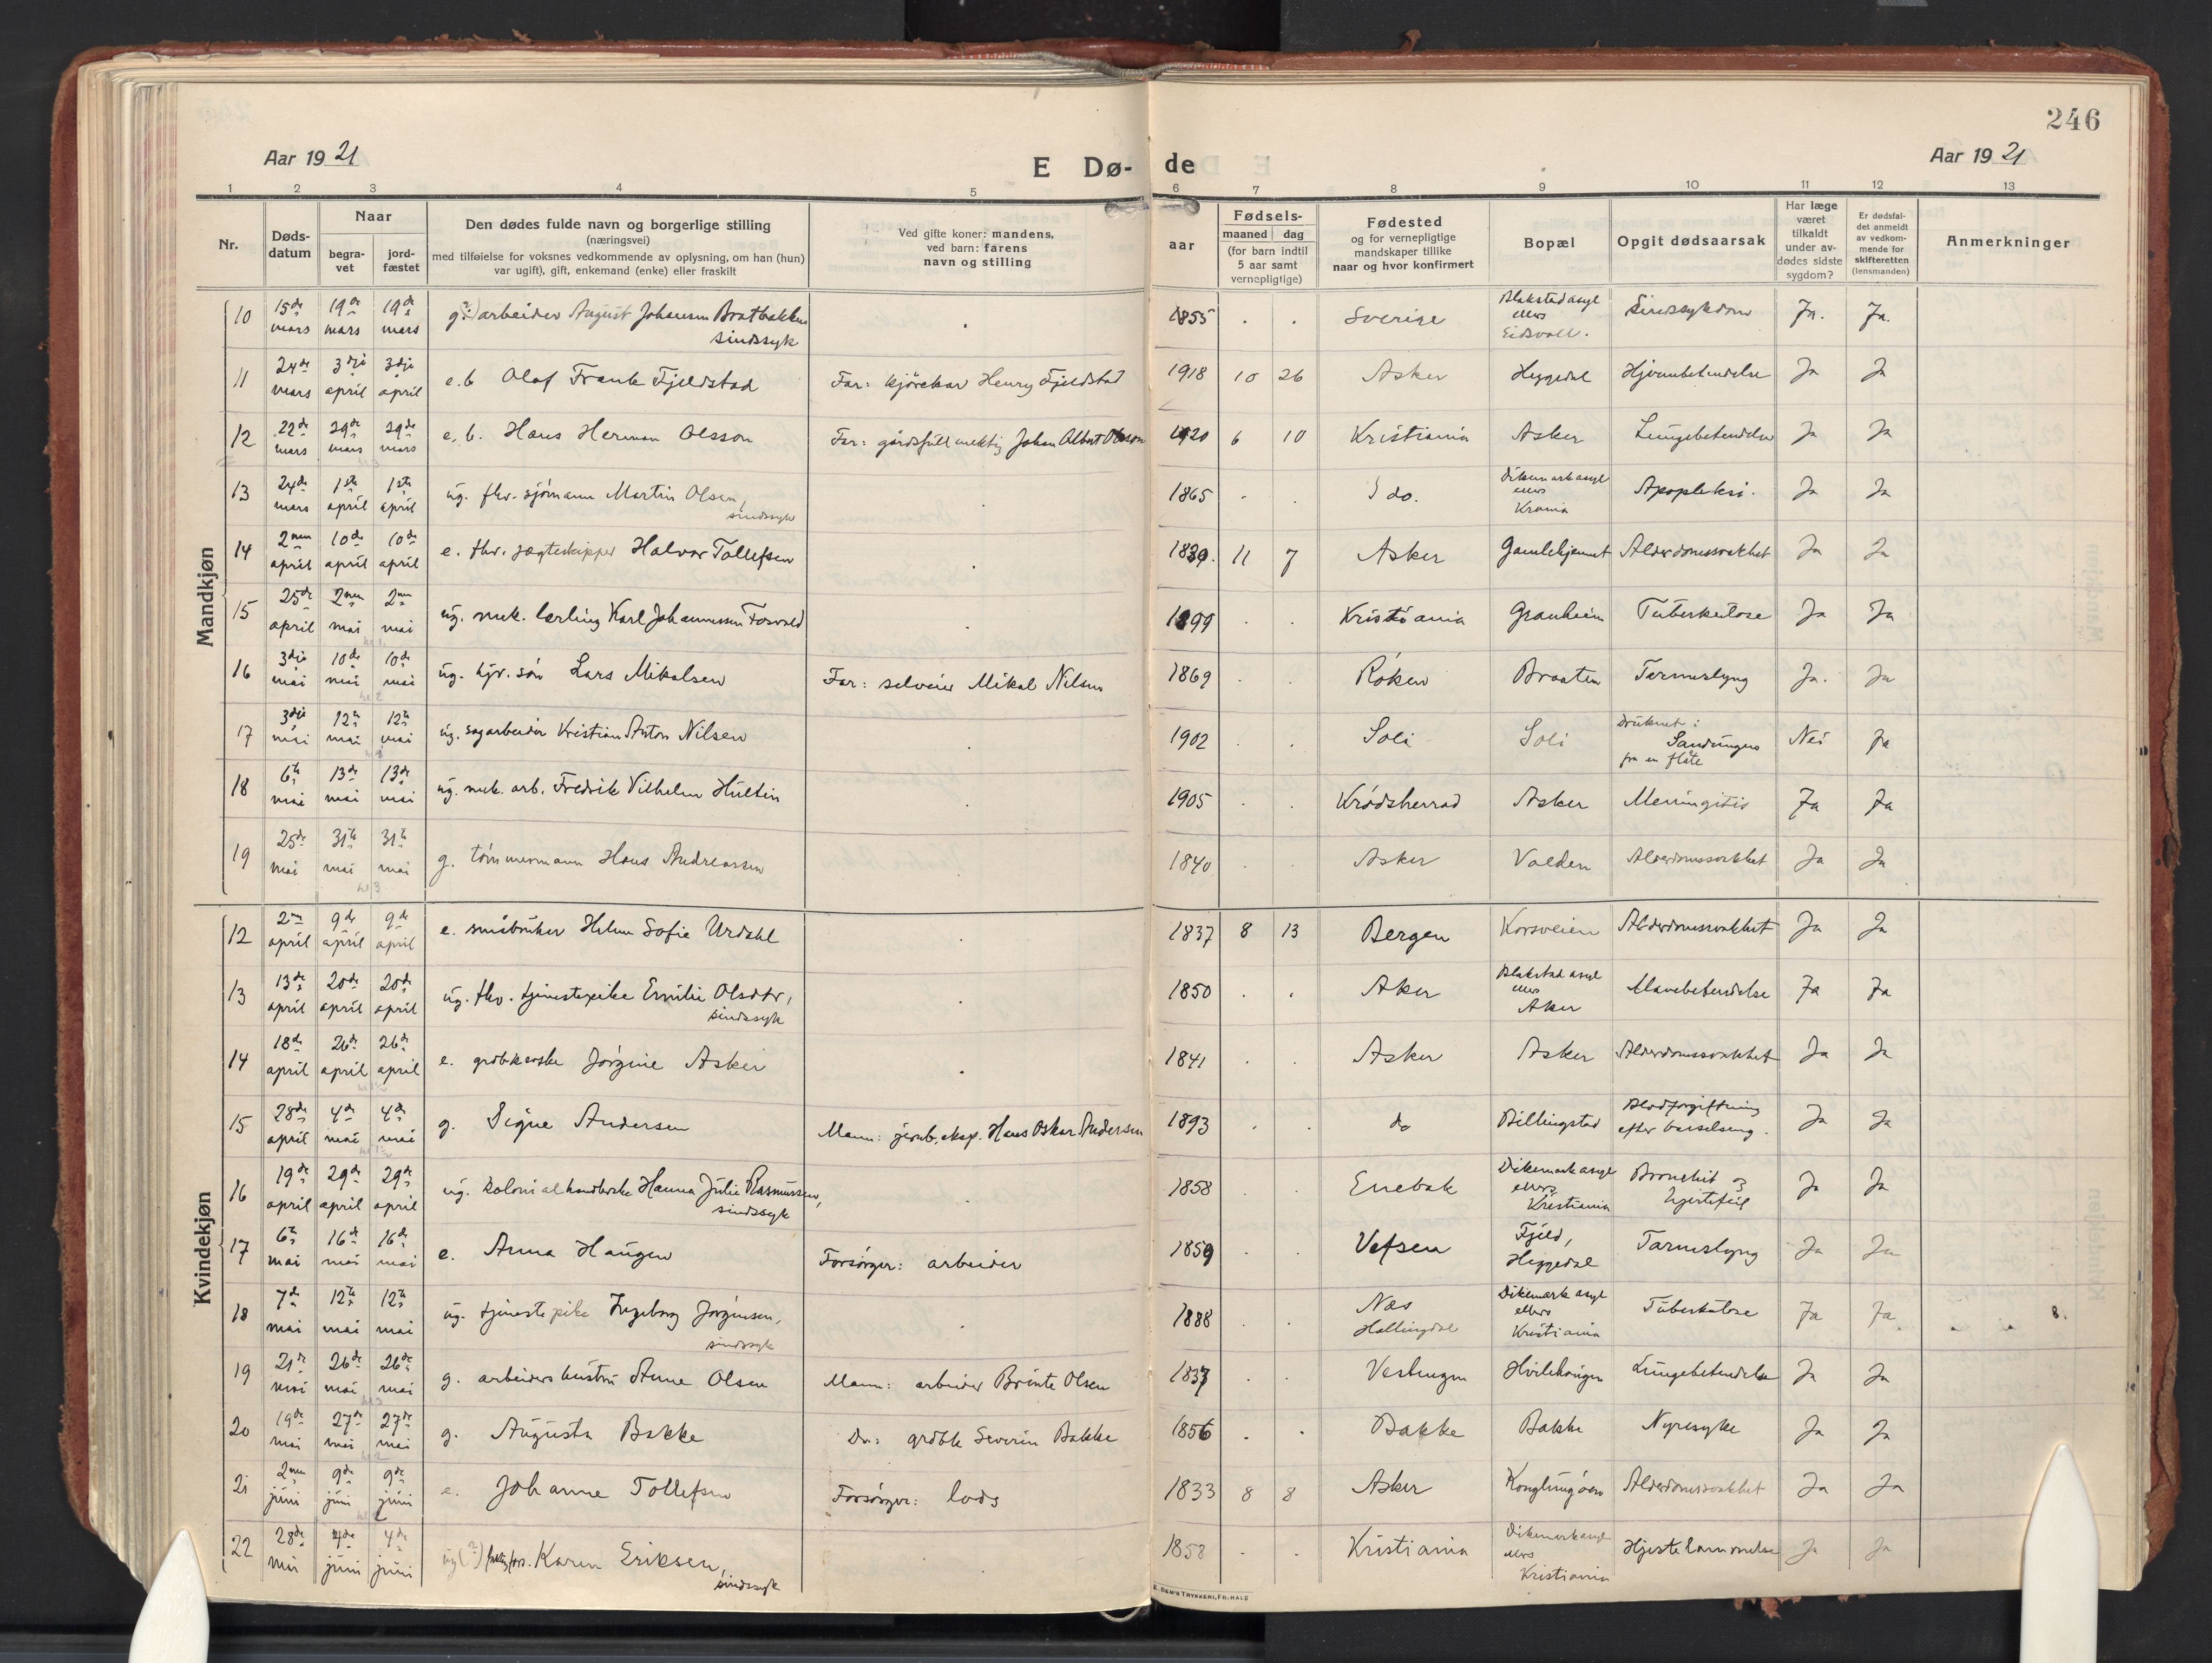 246
Aar 1921
E Dø- de
Aar 1921
1 2 3 4 5 6 7 8 9 10 11 12 13
Nr.
Døds-
datum
Naar
begra-
vet
jord-
fæstet
Den dødes fulde navn og borgerlige stilling
(næringsvei)
med tilføielse for voksnes vedkommende av oplysning, om han (hun)
var ugift), gift, enkemand (enke) eller fraskilt
Ved gifte koner: mandens,
ved barn: farens
navn og stilling
aar
Fødsels-
maaned dag
(for barn indtil
5 aar samt
vernepligtige)
Fødested
og for vernepligtige
mandskaper tillike
naar og hvor konfirmert
Bopæl
Opgit dødsaarsak
Har læge
været
tilkaldt
under av-
dødes sidste
sygdom?
Er dødsfal-
det anmeldt
av vedkom-
mende for
skifteretten
(lensmanden)
Anmerkninger
Mandkjøn
10 15de mars 19de mars 19de mars g(?) arbeider August Johansen Bratbakken sindssyk 1855 . . Sverige Blakstad asyl ellers Eidsvoll. Sindssykdom Ja. Ja.
11 24de mars 3dje april 3dje april e.b Olaf Frank Fjeldstad Far: kjørekar Henry Fjeldstad 1918 10 26 Asker Heggedal Hjernebetendelse Ja Ja
12 22de mars 29de mars 29de mars e.b. Hans Herman Olsson Far: gårdsfullmektig Johan Albert Olsson 1920 6 10 Kristiania Asker Lungebetendelse Ja Ja
13 24de mars 1ste april 1ste april ug. fhv. sjømann Martin Olsen, sindssyk 1865 . . do. Dikemark asyl ellers Krania Apopleksi. Ja Ja
14 2nen april 10de april 10de april e. fhv. jægteskipper Halvor Tollefsen 1839. 11 7 Asker Gamlehjemmet Alderdomssvakhet Ja Ja
15 25de april 2nen mai 2nen mai ug. mek. lærling Karl Johannessen Torsvold 1899 . . Kristiania Granheim Tuberkulose Ja Ja
16 3dje mai 10de mai 10de mai ug. hjv. søn Lars Mikalsen Far: selveier Mikal Nilsen 1869 . . Røken Braaten Tarmslyng Ja. Ja
17 3dje mai 12te mai 12te mai ug. sagarbeider Kristian Anton Nilsen 1902 . . Soli Soli Druknet i Sandungen fra en flåte Nei Ja
18 6te mai 13de mai 13de mai ug. mek. arb. Fredrik Vilhelm Hultin 1905 . . Krødsherrad Asker Meningitis Ja Ja
19 25de mai 31te mai 31te mai g. tømmermann Hans Andreassen 1840 . . Asker Volden Alderdomssvakhet Ja Ja
Kvindekjøn
12 2nen april 9de april 9de april e. småbruker Helene Sofie Urdahl 1837 8 13 Bergen Korsveien Alderdomssvakhet Ja Ja
13 13de april 20de april 20de april ug. fhv. tjenestepike Emilie Olsdtr, sindssyk 1850 . . Aker Blakstad asyl ellers Aker Mavebetendelse Ja Ja
14 18de april 26de april 26de april e. grdbkerske Jørgine Asker 1841 . . Asker Asker Alderdomssvakhet Ja Ja
15 28de april 4de mai 4de mai g. Signe Andersen Mann: jernb.eksp. Hans Oskar Andersen 1893 . . do Billingstad Blodforgiftning efter barselseng. Ja Ja
16 19de april 29de april 29de april ug. kolonialhandlerske Hanna Julie Rasmussen, sindssyk 1858 . . Enebak Dikemark asyl ellers Kristiania Bronchit og hjertefeil Ja Ja
17 6te mai 16de mai 16de mai e. Anna Haugen Forsørger: arbeider 1859 . . Vefsen Fjeld, Heggedal Tarmslyng Ja Ja
18 7de mai 12te mai 12te mai ug. tjenestepike Ingeborg Jørgensen, sindssyk 1888 . . Næs Hallingdal Dikemark asyl ellers Kristiania Tuberkulose Ja Ja
19 21de mai 26de mai 26de mai g. arbeiders hustru Anne Olsen Mann: arbeider Brinte Olsen 1837 . . Vestungen Hvilehaugen Lungebetendelse Ja Ja
20 19de mai 27de mai 27de mai g. Augusta Bakke Do.: grdbk Severin Bakke 1856 . . Bakke Bakke Nyresyke Ja Ja
21 2nen juni 9de juni 9de juni e. Johanne Tollefsen Forsørger: lods 1833 8 8 Asker Konglungøen Alderdomssvakhet Ja Ja
22 28de mai 4de juni 4de juni ug(?) Karen Eriksen, sindssyk 1858 . . Kristiania Dikemark asyl ellers Kristiania Hjertelammelse Ja Ja
TRYKKERI, FR.HALD